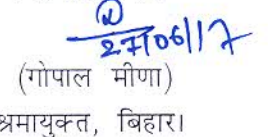 27/06/17
(गोपाल मीणा)
श्रमायुक्त, बिहार।